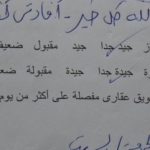 الله كل خير - أفادتى
جيد جدا جيد مقبول ضعيف
جيدة جدا جيدة مقبولة ضع
ويق عقارى مفصلة على أكثر من يوم